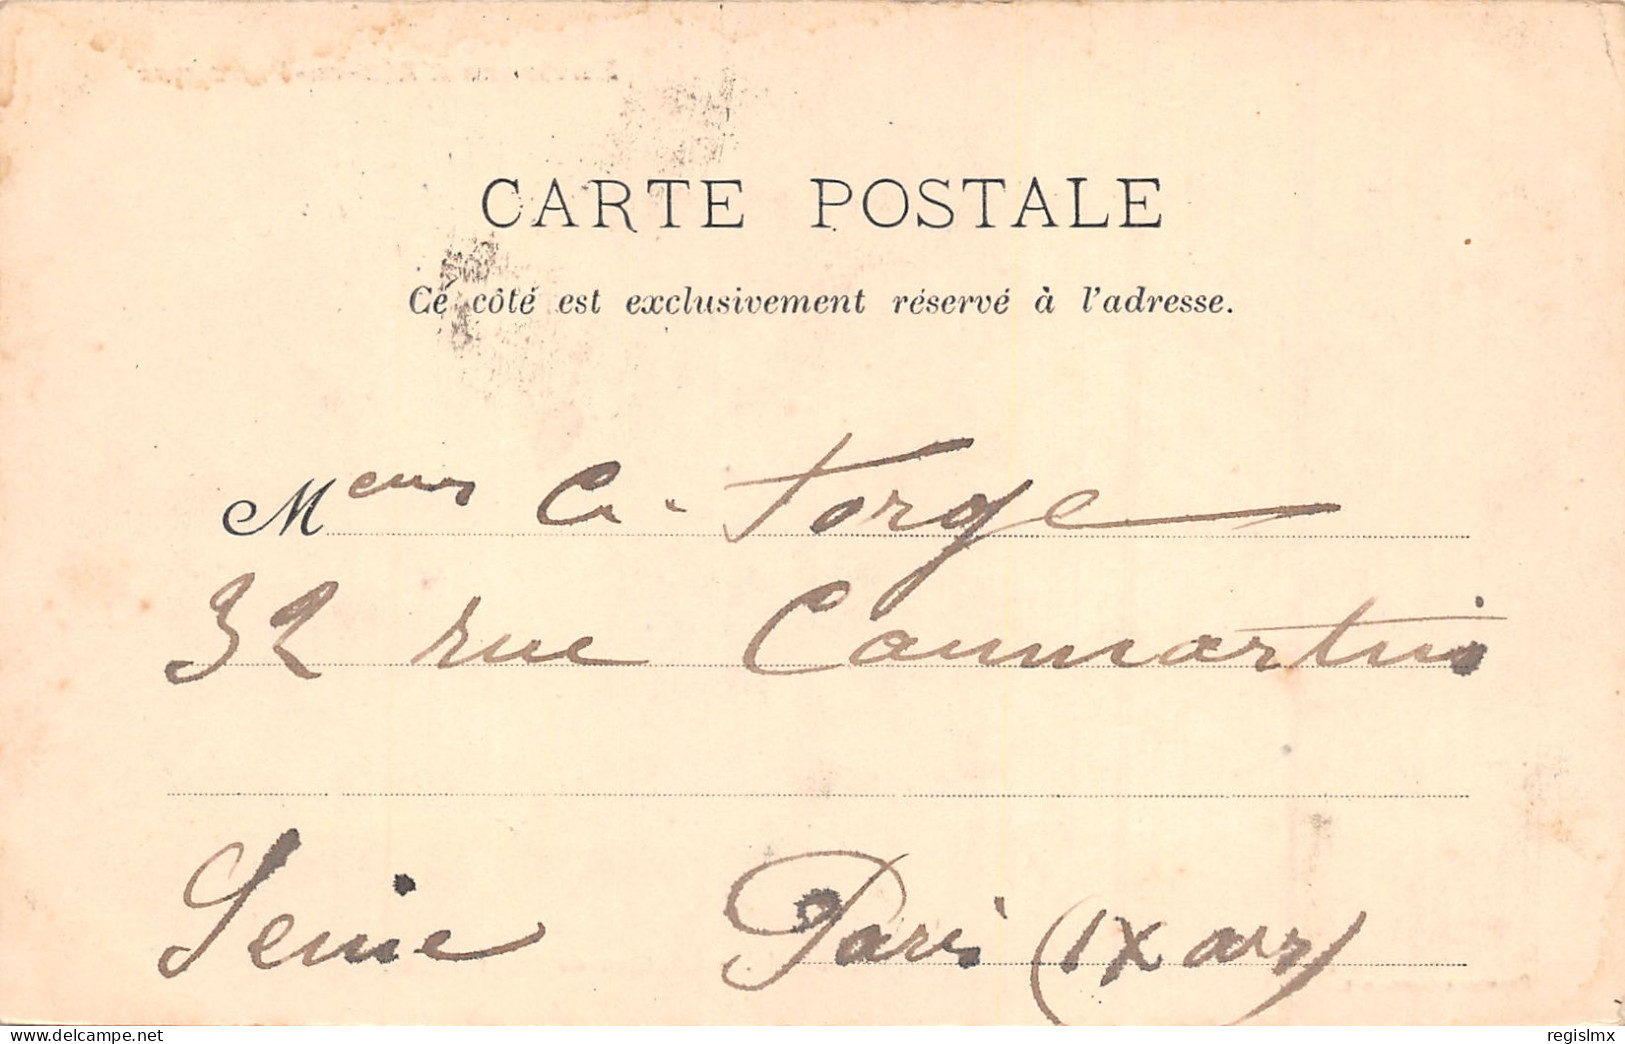 CARTE POSTALE
Ce côté est exclusivement réservé à l'adresse.
Meur C. Forge
32 rue Caumartin
Seine Paris (IX arr)
regislmx